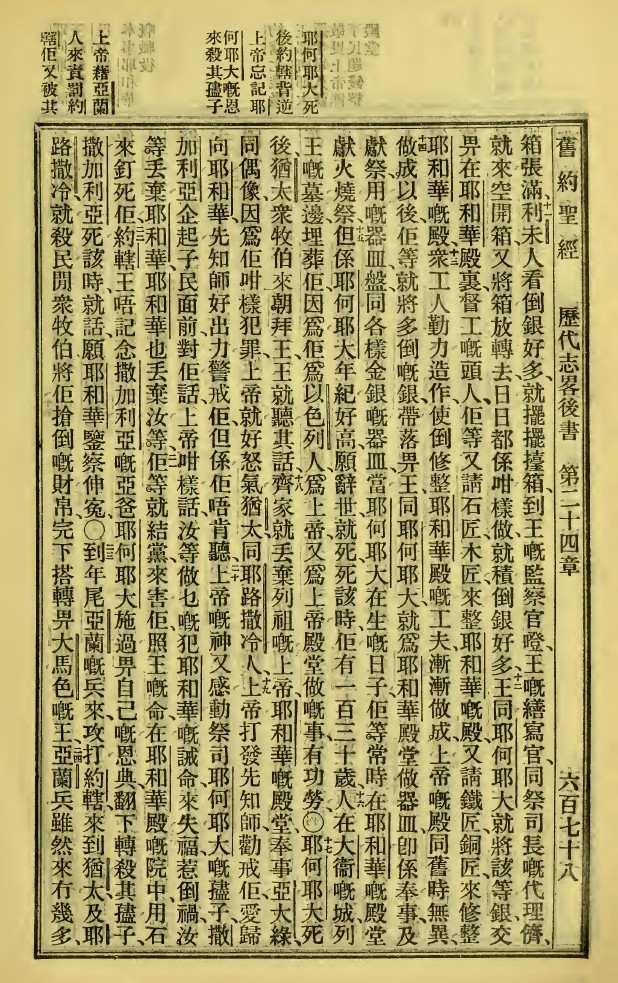 舊約聖經 歷代志畧後書 第二十四章 六百七十八
箱張滿十一利未人看倒銀好多、就擺擡箱到王嘅監察官嶝、王嘅繕寫官、同祭司長嘅代理儕、
就來空開箱、又將箱放轉去、日日都係咁樣做、就積倒銀好多、十二王同耶何耶大就將該等銀交
畀在耶和華殿裏督工嘅頭人、佢等又請石匠木匠來整耶和華嘅殿、又請鐵匠銅匠來修整
耶和華嘅殿、十三衆工人勤力造作、使倒修整耶和華殿嘅工夫漸漸做成、上帝嘅殿同舊時無異、
十四做成以後、佢等就將多倒嘅銀帶落畀王同耶何耶大、就爲耶和華殿堂做器皿、卽係奉事及
獻祭用嘅器皿、盤同各樣金銀嘅器皿、當耶何耶大在生嘅日子、佢等常時在耶和華嘅殿堂
獻火燒祭、十五但係耶何耶大年紀好高、願辭世就死、死該時佢有一百三十歲、十六人在大衞嘅城列
王嘅墓邊埋葬佢、因爲佢爲以色列人、爲上帝、又爲上帝殿堂做嘅事有功勞、〇十七耶何耶大死
後、猶太衆牧伯來朝拜王、王就聽其話、十八齊家就丢棄列祖嘅上帝耶和華嘅殿堂、奉事亞大綠
同偶像、因爲佢咁樣犯罪、上帝就好怒氣猶太同耶路撒冷人、十九上帝打發先知師勸戒佢、愛歸
向耶和華、先知師好出力警戒佢、但係佢唔肯聽、二十上帝嘅神又感動祭司耶何耶大嘅孻子、撒
加利亞、企起子民面前、對佢話、上帝咁樣話、汝等做乜嘅犯耶和華嘅誡命、來失福惹倒禍、汝
等丢棄耶和華、耶和華也丢棄汝等、二一佢等就結黨來害佢、照王嘅命、在耶和華殿嘅院中用石
來釘死佢、二二約轄王唔記念撒加利亞嘅亞爸耶何耶大施過畀自己嘅恩典、翻下轉殺其孻子、
撒加利亞死該時就話、願耶和華鑒察伸寃、〇二三到年尾、亞蘭嘅兵來攻打約轄、來到猶太及耶
路撒冷、就殺民間衆牧伯、將佢搶倒嘅財帛、完下搭轉畀大馬色嘅王、二四亞蘭兵雖然來冇幾多、
耶何耶大死
後約轄背逆
上帝忘記耶
何耶大嘅恩
來殺其孻子
上帝藉亞蘭
人來責罰約
轄佢又被其